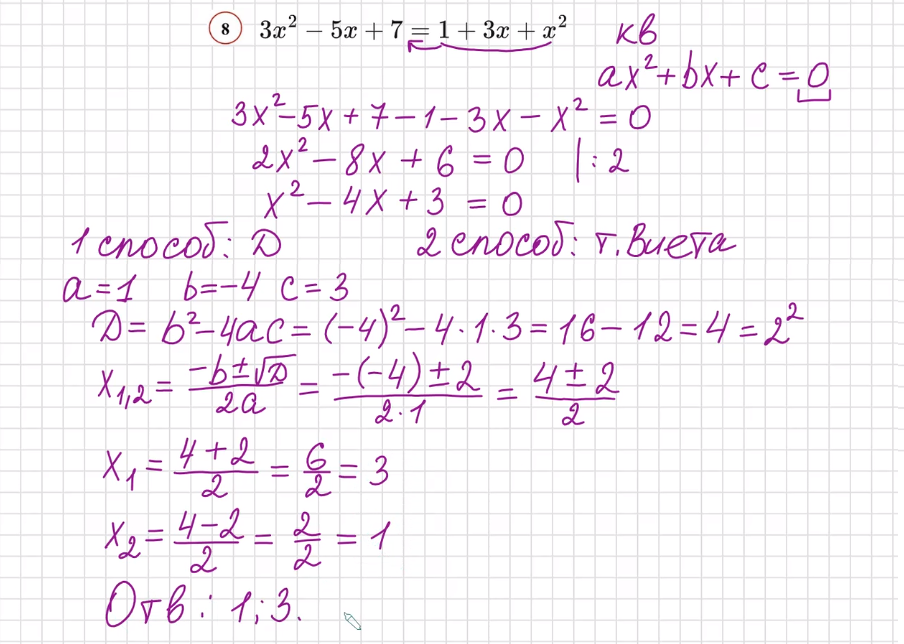 8 3x² − 5x + 7 = 1 + 3x + x²
кв
ax² + bx + c = 0
3x² − 5x + 7 − 1 − 3x − x² = 0
2x² − 8x + 6 = 0 | : 2
x² − 4x + 3 = 0
1 способ: D 2 способ: т. Виета
a = 1 b = −4 c = 3
D = b² − 4ac = (−4)² − 4 · 1 · 3 = 16 − 12 = 4 = 2²
x₁,₂ = (−b ± √D)/(2a) = (−(−4) ± 2)/(2 · 1) = (4 ± 2)/2
x₁ = (4 + 2)/2 = 6/2 = 3
x₂ = (4 − 2)/2 = 2/2 = 1
Отв: 1; 3.